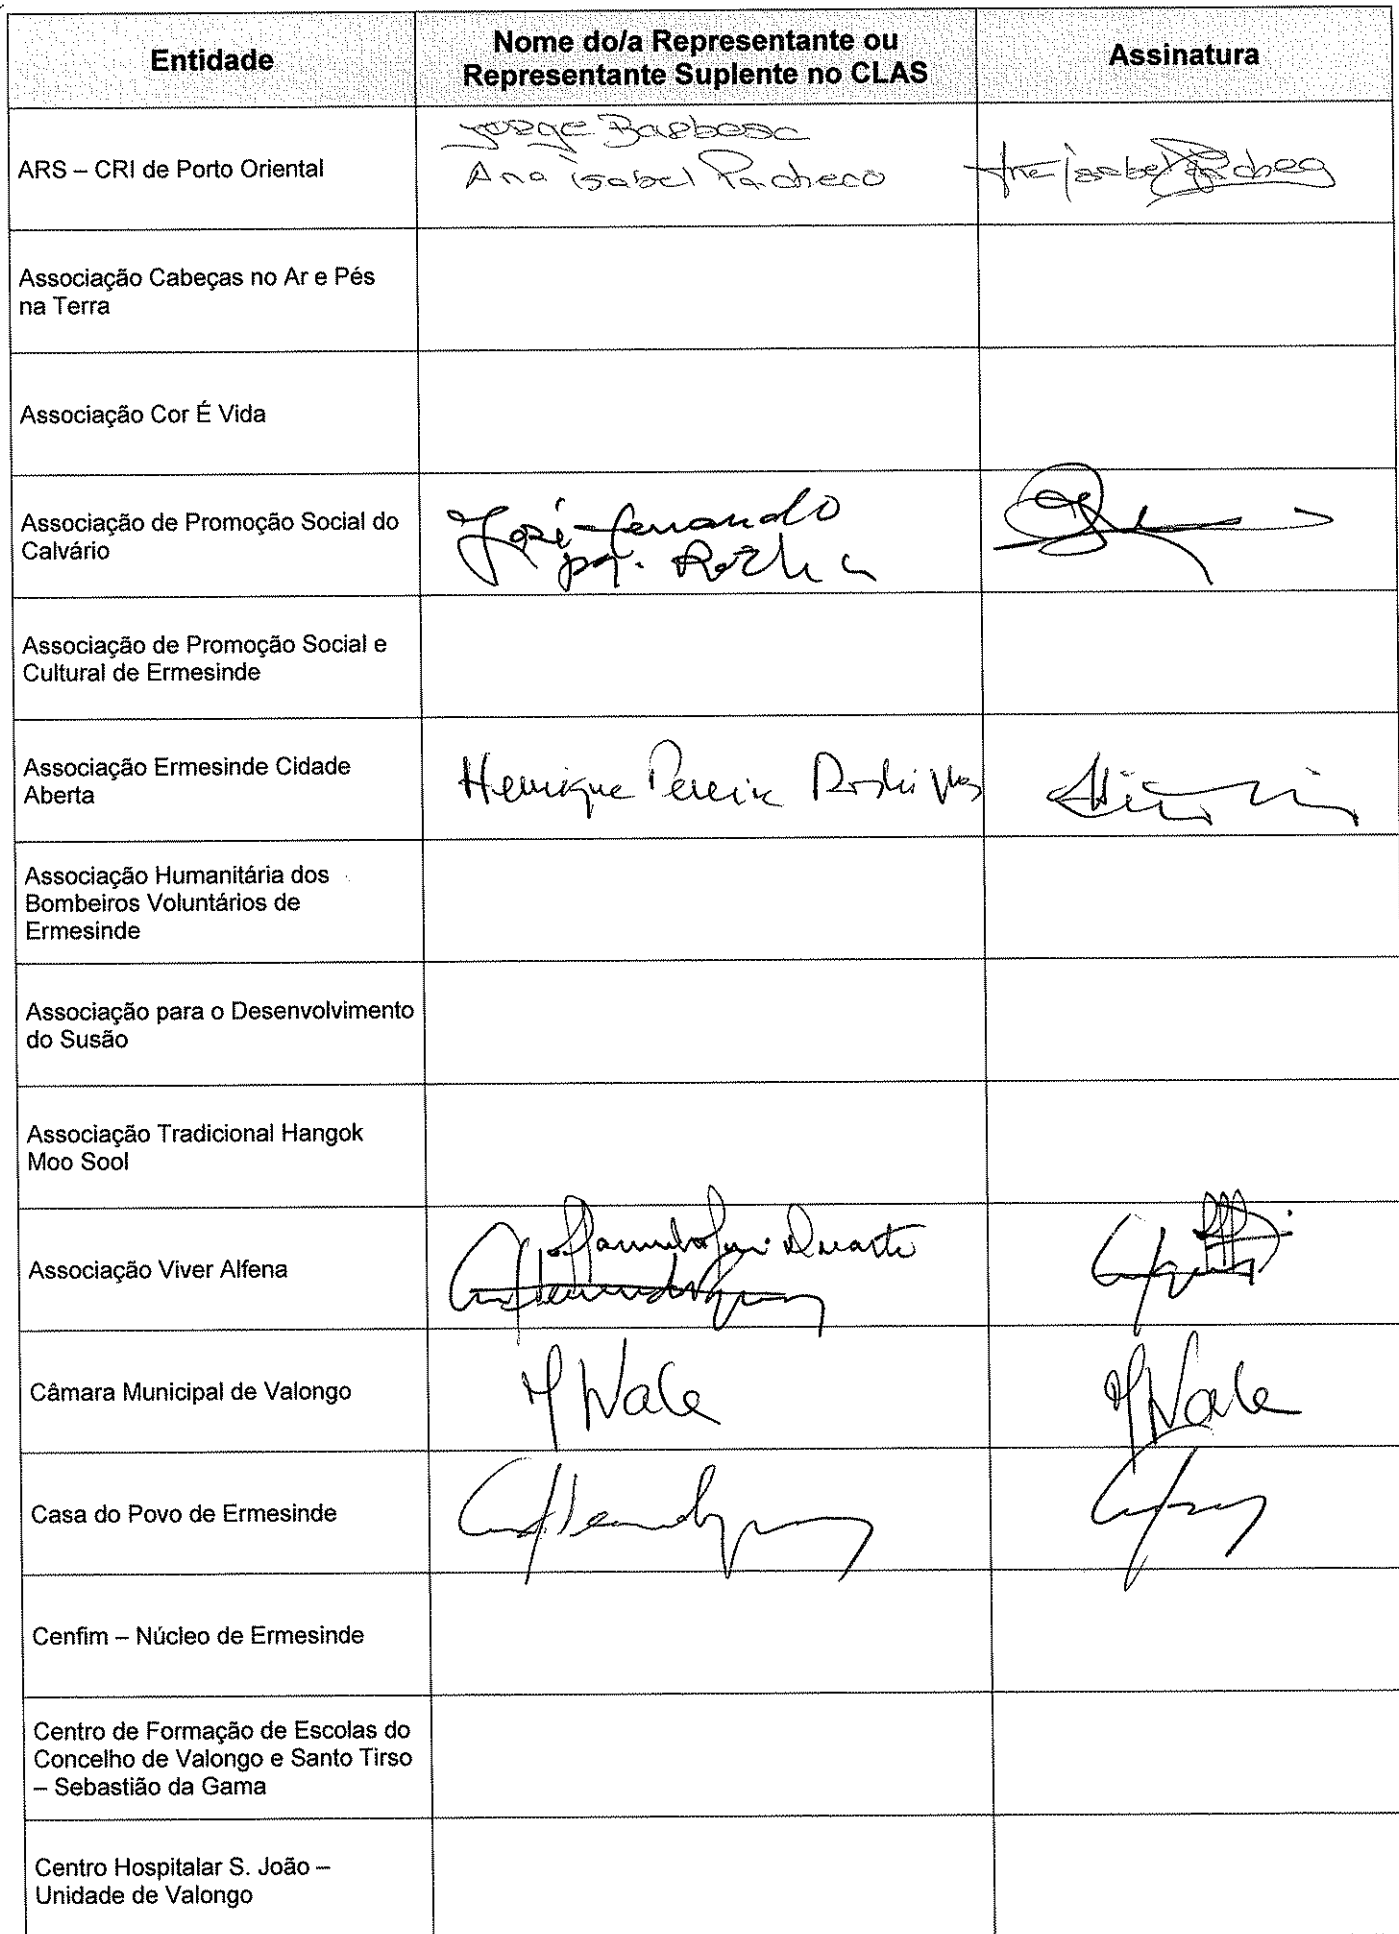 Entidade
Nome do/a Representante ou
Representante Suplente no CLAS
Assinatura
ARS – CRI de Porto Oriental
Jorge Barbosa
Ana isabel Pacheco
Ana isabel Pacheco
Associação Cabeças no Ar e Pés
na Terra
Associação Cor É Vida
Associação de Promoção Social do
Calvário
José fernando
Rocha
Associação de Promoção Social e
Cultural de Ermesinde
Associação Ermesinde Cidade
Aberta
Henrique Pereira Rodrigues
Associação Humanitária dos
Bombeiros Voluntários de
Ermesinde
Associação para o Desenvolvimento
do Susão
Associação Tradicional Hangok
Moo Sool
Associação Viver Alfena
Duarte
Câmara Municipal de Valongo
Vale
Vale
Casa do Povo de Ermesinde
Cenfim – Núcleo de Ermesinde
Centro de Formação de Escolas do
Concelho de Valongo e Santo Tirso
– Sebastião da Gama
Centro Hospitalar S. João –
Unidade de Valongo